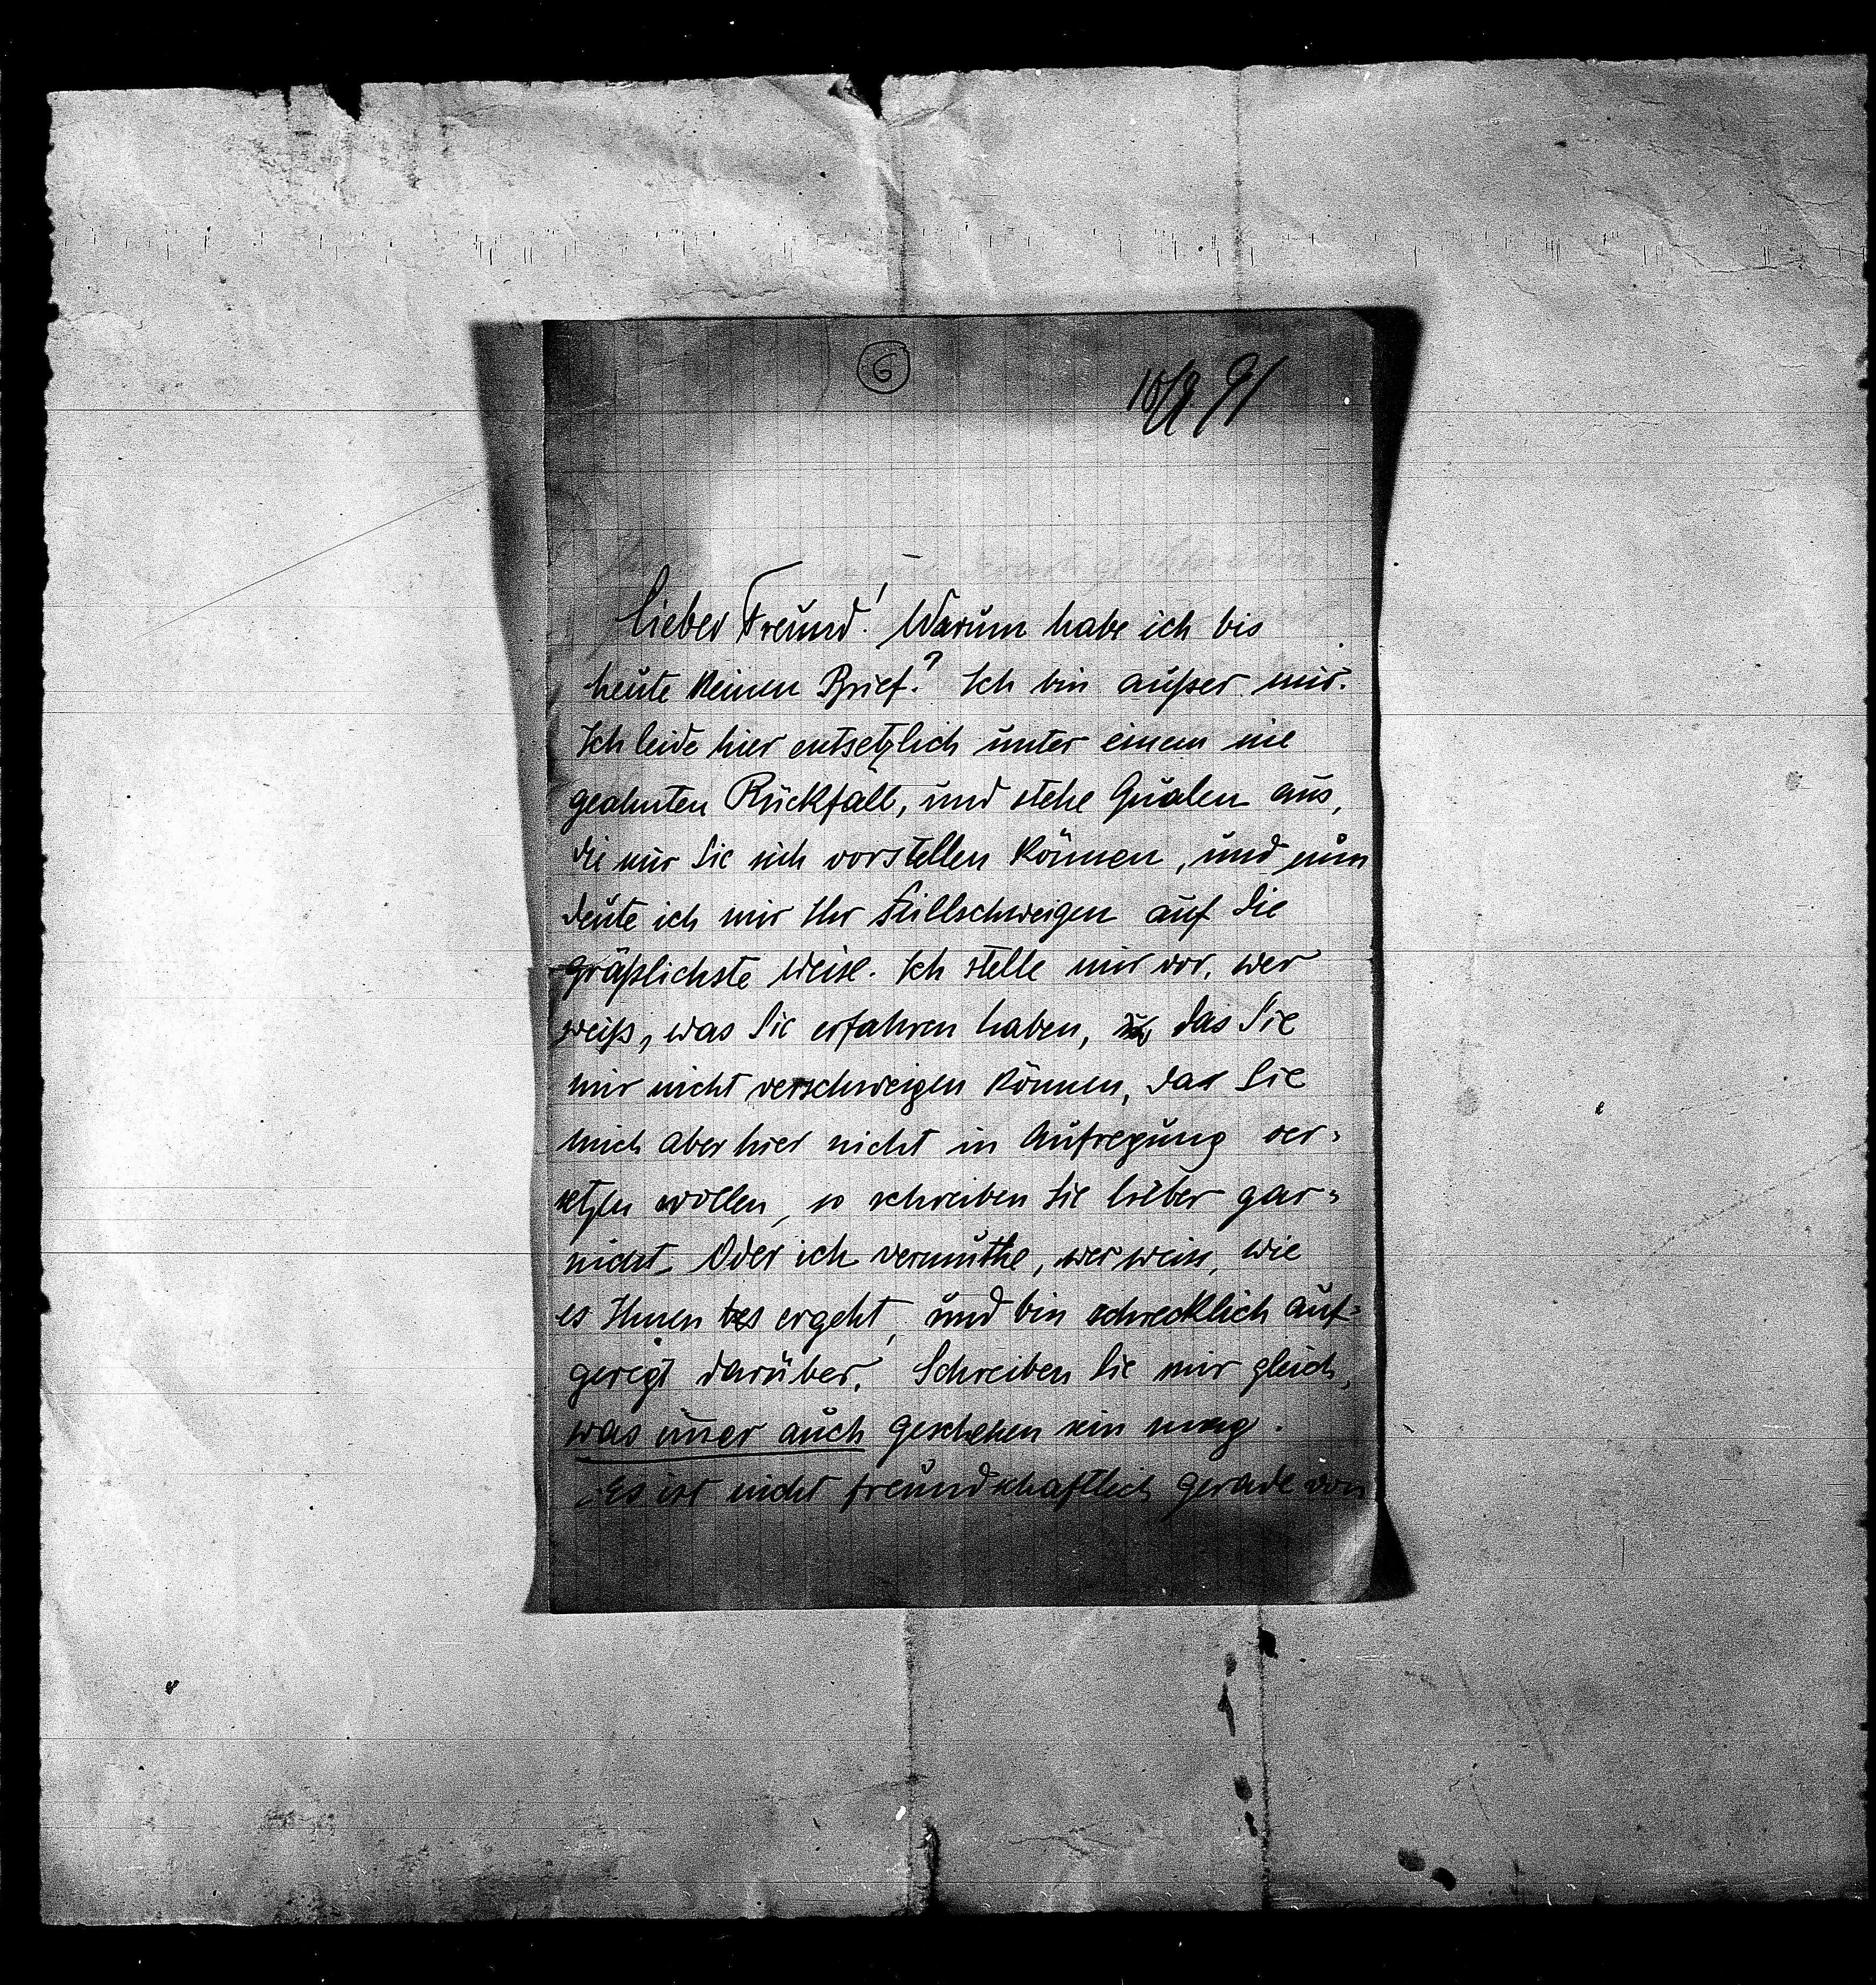 6
10/8 91
Lieber Freund! Warum habe ich bis
heute keinen Brief? Ich bin außer mir.
Ich leide hier entsetzlich unter einem nie
geahnten Rückfall, und stehe Qualen aus,
die nur Sie sich vorstellen können, und nun
deute ich mir Ihr Stillschweigen auf die
gräßlichste Weise. Ich stelle mir vor, wer
weiß, was Sie erfahren haben, das Sie
mir nicht verschweigen können, das Sie
mich aber hier nicht in Aufregung ver=
setzen wollen, so schreiben Sie lieber gar=
nicht. Oder ich vermuthe, wer weiss, wie
es Ihnen ergeht, und bin schrecklich auf=
geregt darüber. Schreiben Sie mir gleich,
was im̄er auch geschehen sein mag.
Es ist nicht freundschaftlich gerade von